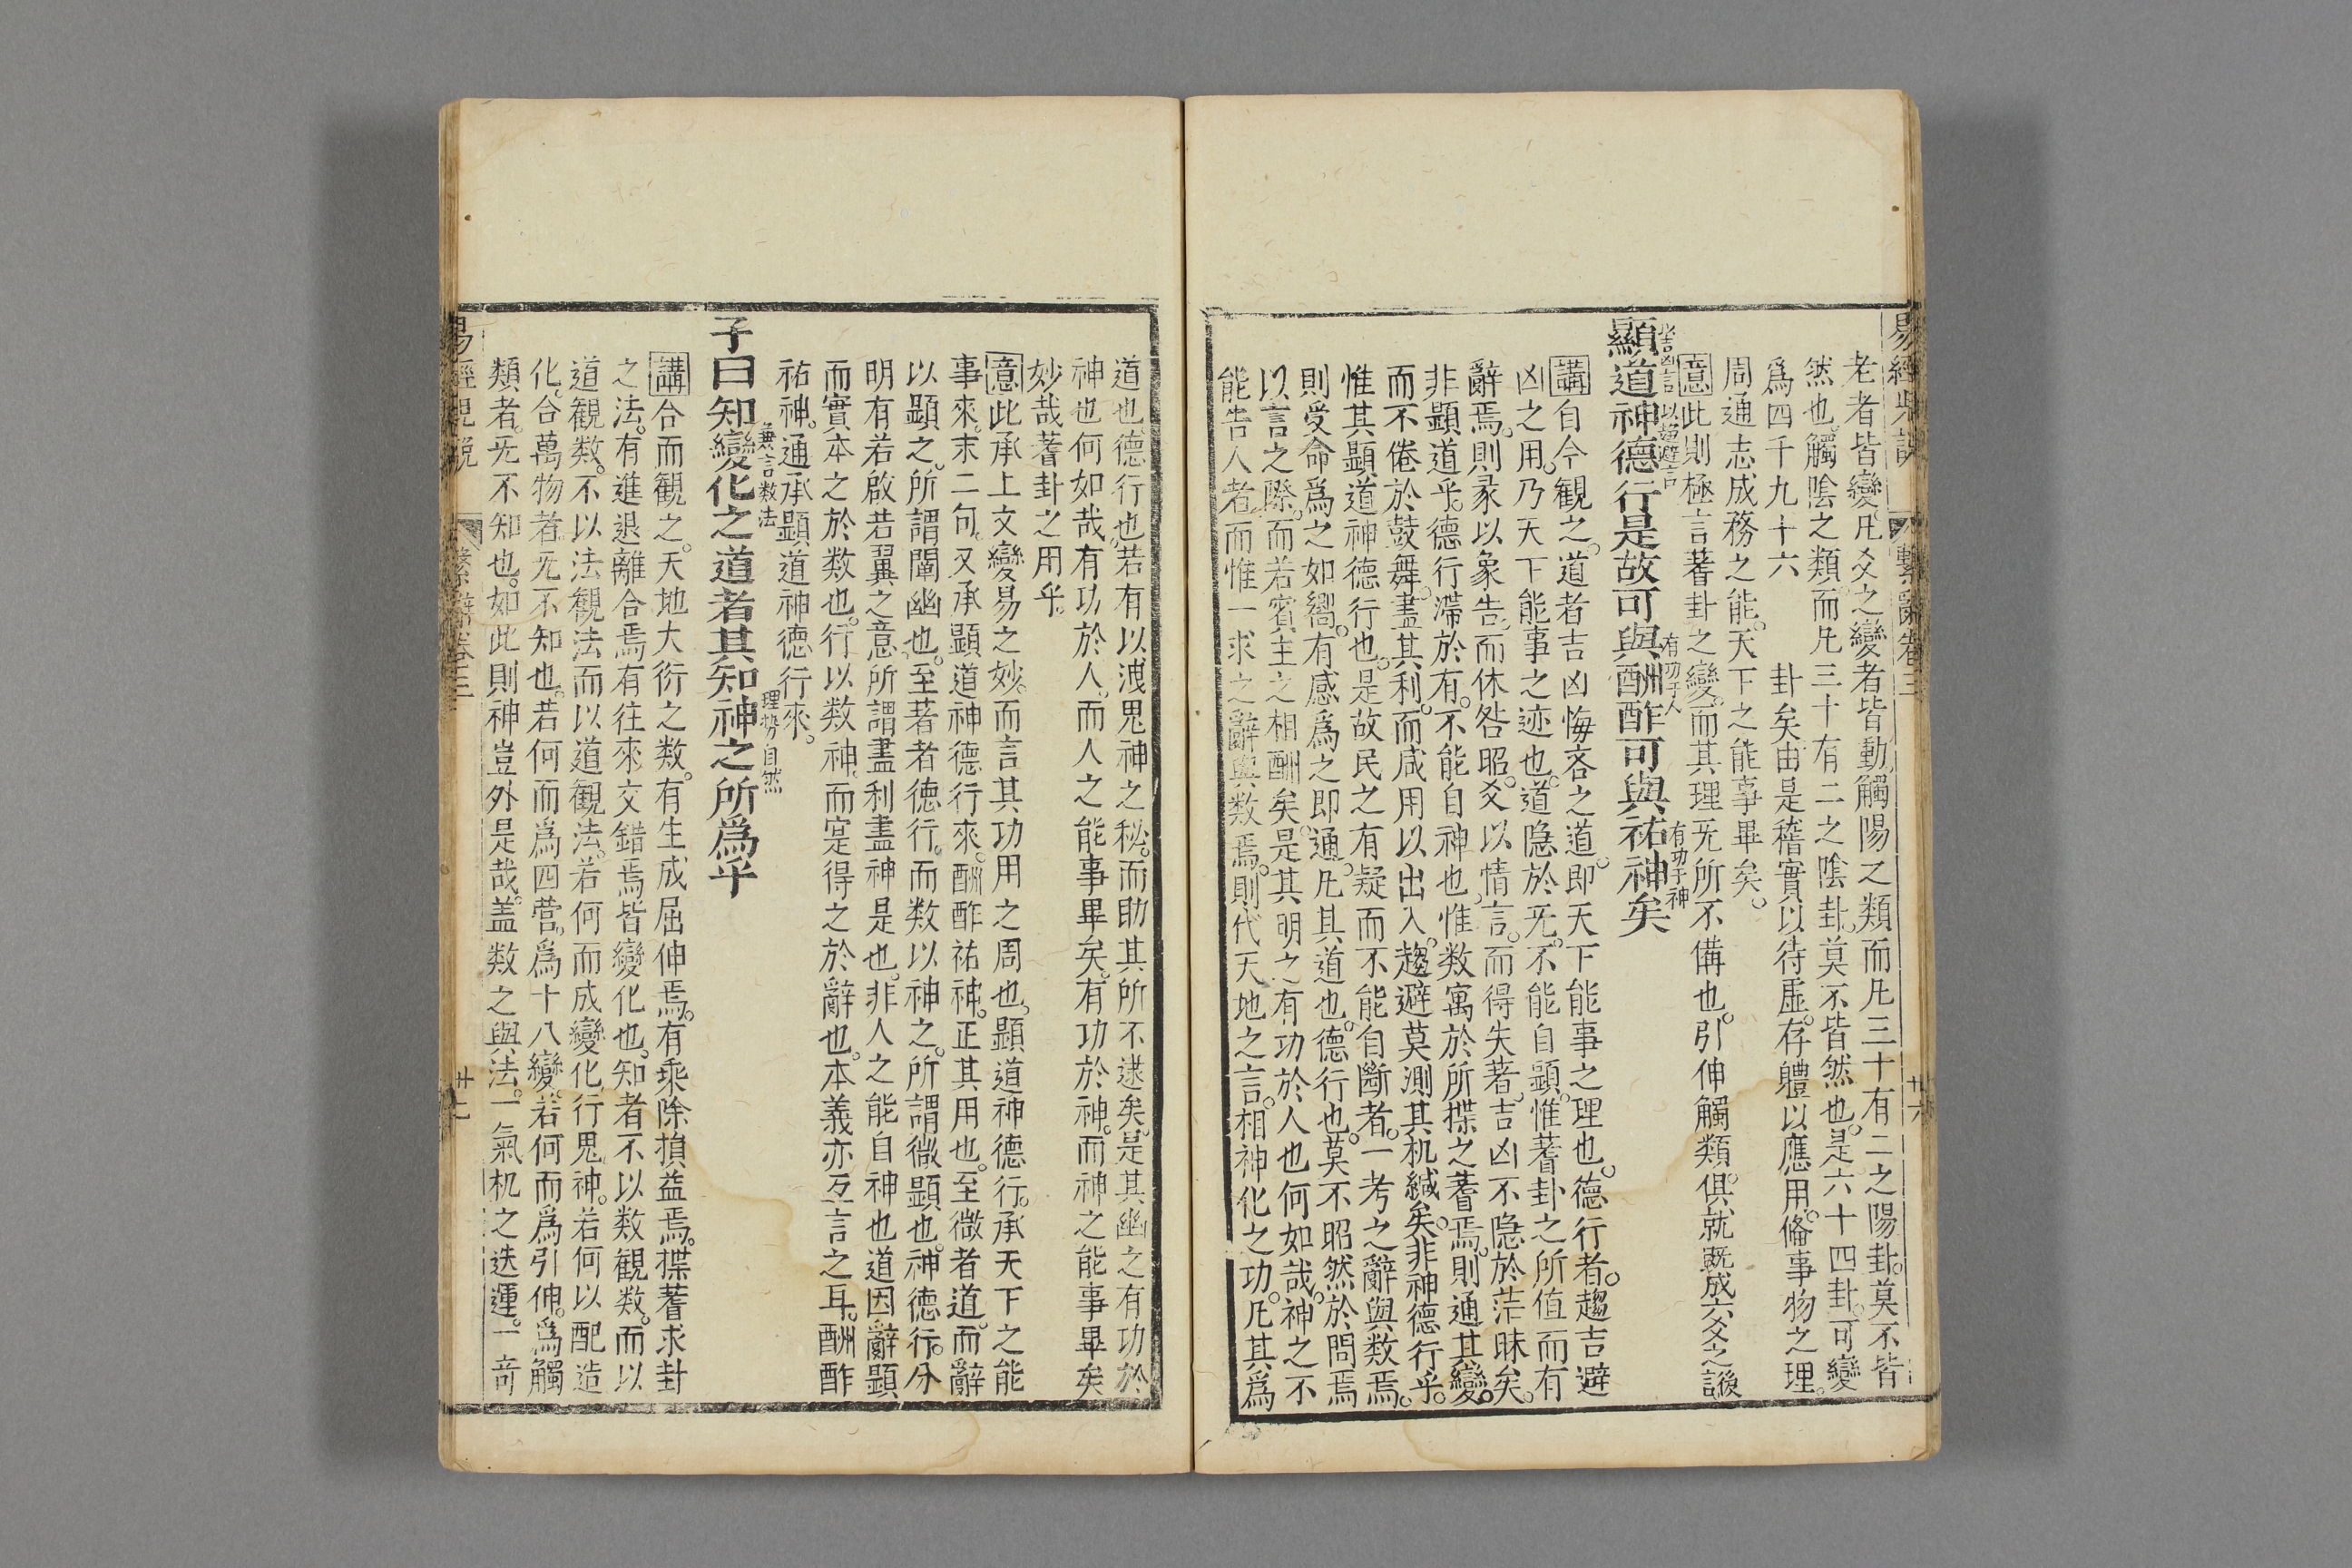 易經 繫辭卷三 廿六
老者皆變凡爻之變者皆動觸陽之類而凡三十有二之陽卦莫不皆
然也觸陰之類而凡三十有二之陰卦莫不皆然也是六十四卦可變
爲四千九十六 卦矣由是稽實以待虛存體以應用俻事物之理
周通志成務之能天下之能事畢矣
意此則極言蓍卦之變而其理旡所不備也引伸觸類俱就旣成六爻之後言
以趨避言
有功于人
有功于神
顯道神德行是故可與酬酢可與祐神矣
講自今觀之道者吉凶悔吝之道即天下能事之理也德行者趨吉避
凶之用乃天下能事之迹也道隐於旡不能自顯惟蓍卦之所值而有
辭焉則彖以象告而休咎昭爻以情言而得失著吉凶不隐於茫昧矣
非顯道乎德行滯於有不能自神也惟数寓於所揲之蓍焉則通其變
而不倦於鼓舞盡其利而咸用以出入趨避莫測其机緘矣非神德行乎
惟其顯道神德行也是故民之有疑而不能自斷者一考之辭與数焉
則受命爲之如嚮有感爲之即通凡其道也德行也莫不昭然於問焉
以言之際而若賓主之相酬矣是其明之有功於人也何如哉神之不
能告人者而惟一求之辭與数焉則代天地之言相神化之功凡其爲
道也德行也若有以洩鬼神之秘而助其所不逮矣是其幽之有功於
神也何如哉有功於人而人之能事畢矣有功於神而神之能事畢矣
妙哉蓍卦之用乎
意此承上文變易之妙而言其功用之周也顯道神德行承天下之能
事來末二句又承顯道神德行來酬酢祐神正其用也至微者道而辭
以顯之所謂闡幽也至著者德行而数以神之所謂微顯也神德行分
明有若啟若翼之意所謂盡利盡神是也非人之能自神也道因辭顯
而實本之於数也行以数神而寔得之於辭也本義亦互言之耳酬酢
祐神通承顯道神德行來
兼言数法
理勢自然
子曰知變化之道者其知神之所爲乎
講合而觀之天地大衍之数有生成屈伸焉有乘除損益焉揲蓍求卦
之法有進退離合焉有往來交錯焉皆變化也知者不以数觀数而以
道觀数不以法觀法而以道觀法若何而成變化行鬼神若何以配造
化合萬物者旡不知也若何而爲四營爲十八變若何而爲引伸爲觸
類者旡不知也如此則神豈外是哉盖数之與法一氣机之迭運一竒
易經 繫辭卷三